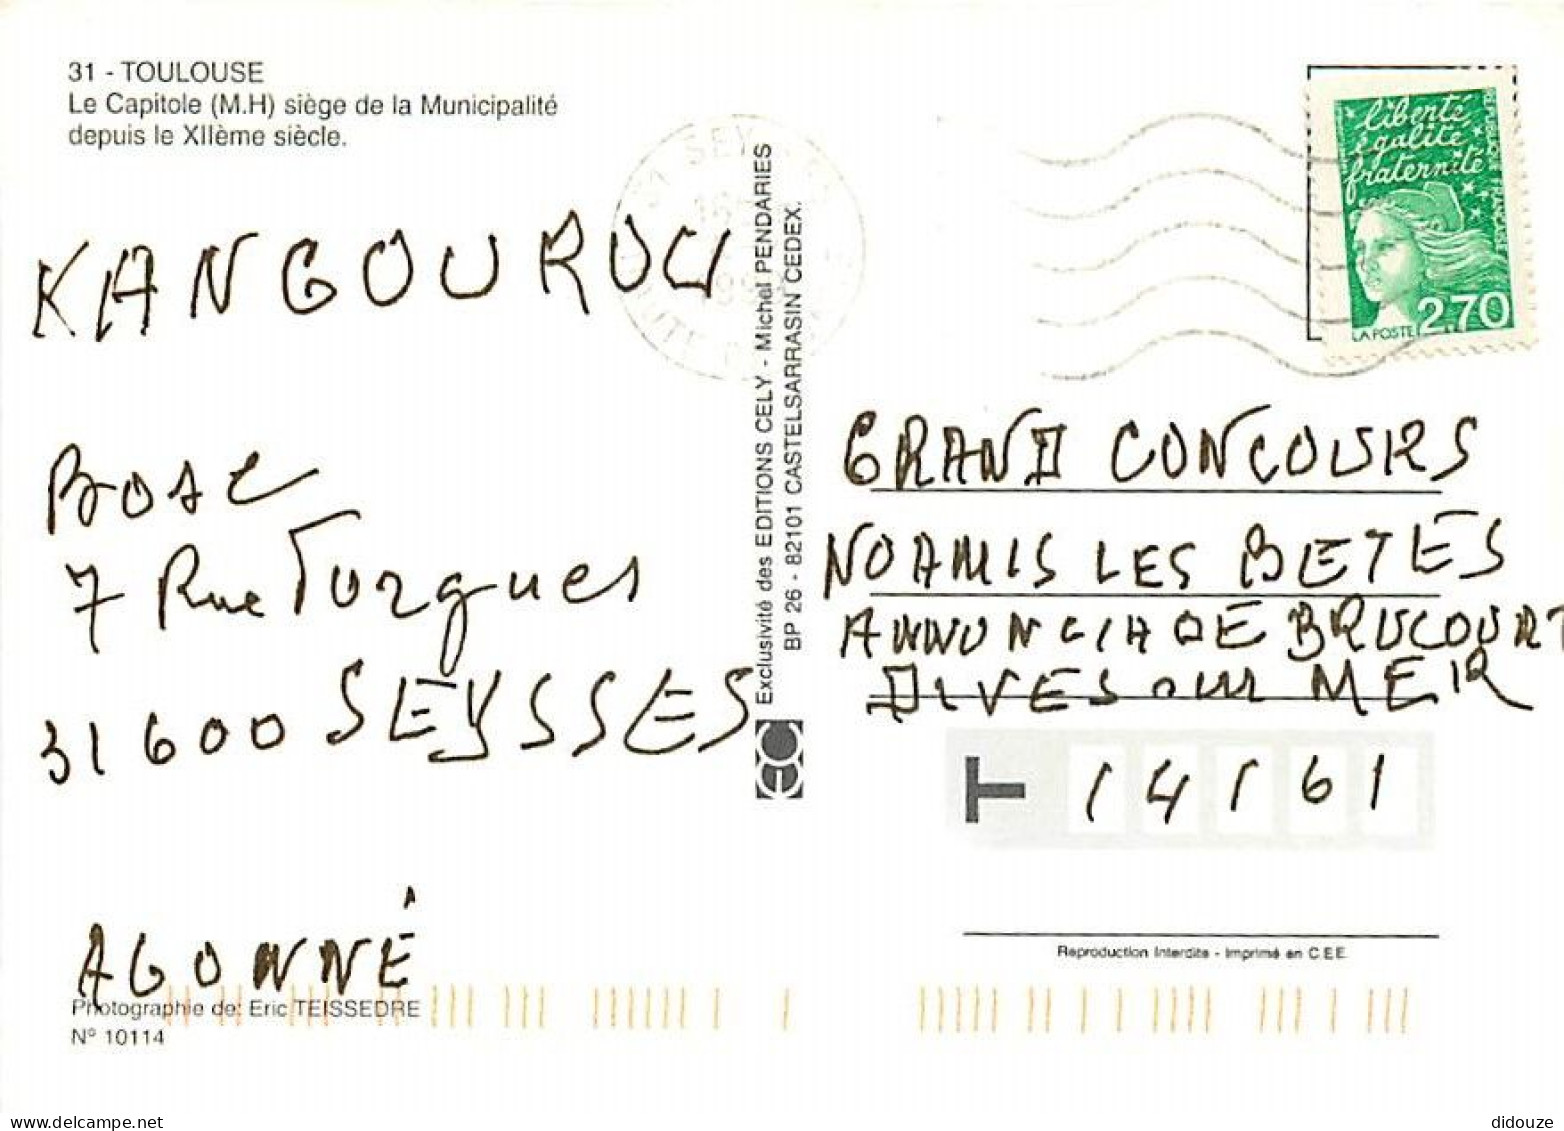 31 - TOULOUSE
Le Capitole (M.H) siège de la Municipalité
depuis le XIIème siècle.
KANGOUROU
BOSC
7 Rue Vorgues
31600 SEYSSES
AGONNÉ
Photographie de: Eric TEISSEDRE
N° 10114
Exclusivité des EDITIONS CELY - Michel PENDARIES
BP 26 - 82101 CASTELSARRASIN CEDEX.
liberté
égalité
fraternité
REPUBLIQUE FRANÇAISE
LA POSTE 2,70
GRAND CONCOURS
NOAMIS LES BETES
ANNUNCIA DE BRUCOURT
DIVES sur MER
T 14161
Reproduction Interdite - Imprimé en C.E.E.
didouze